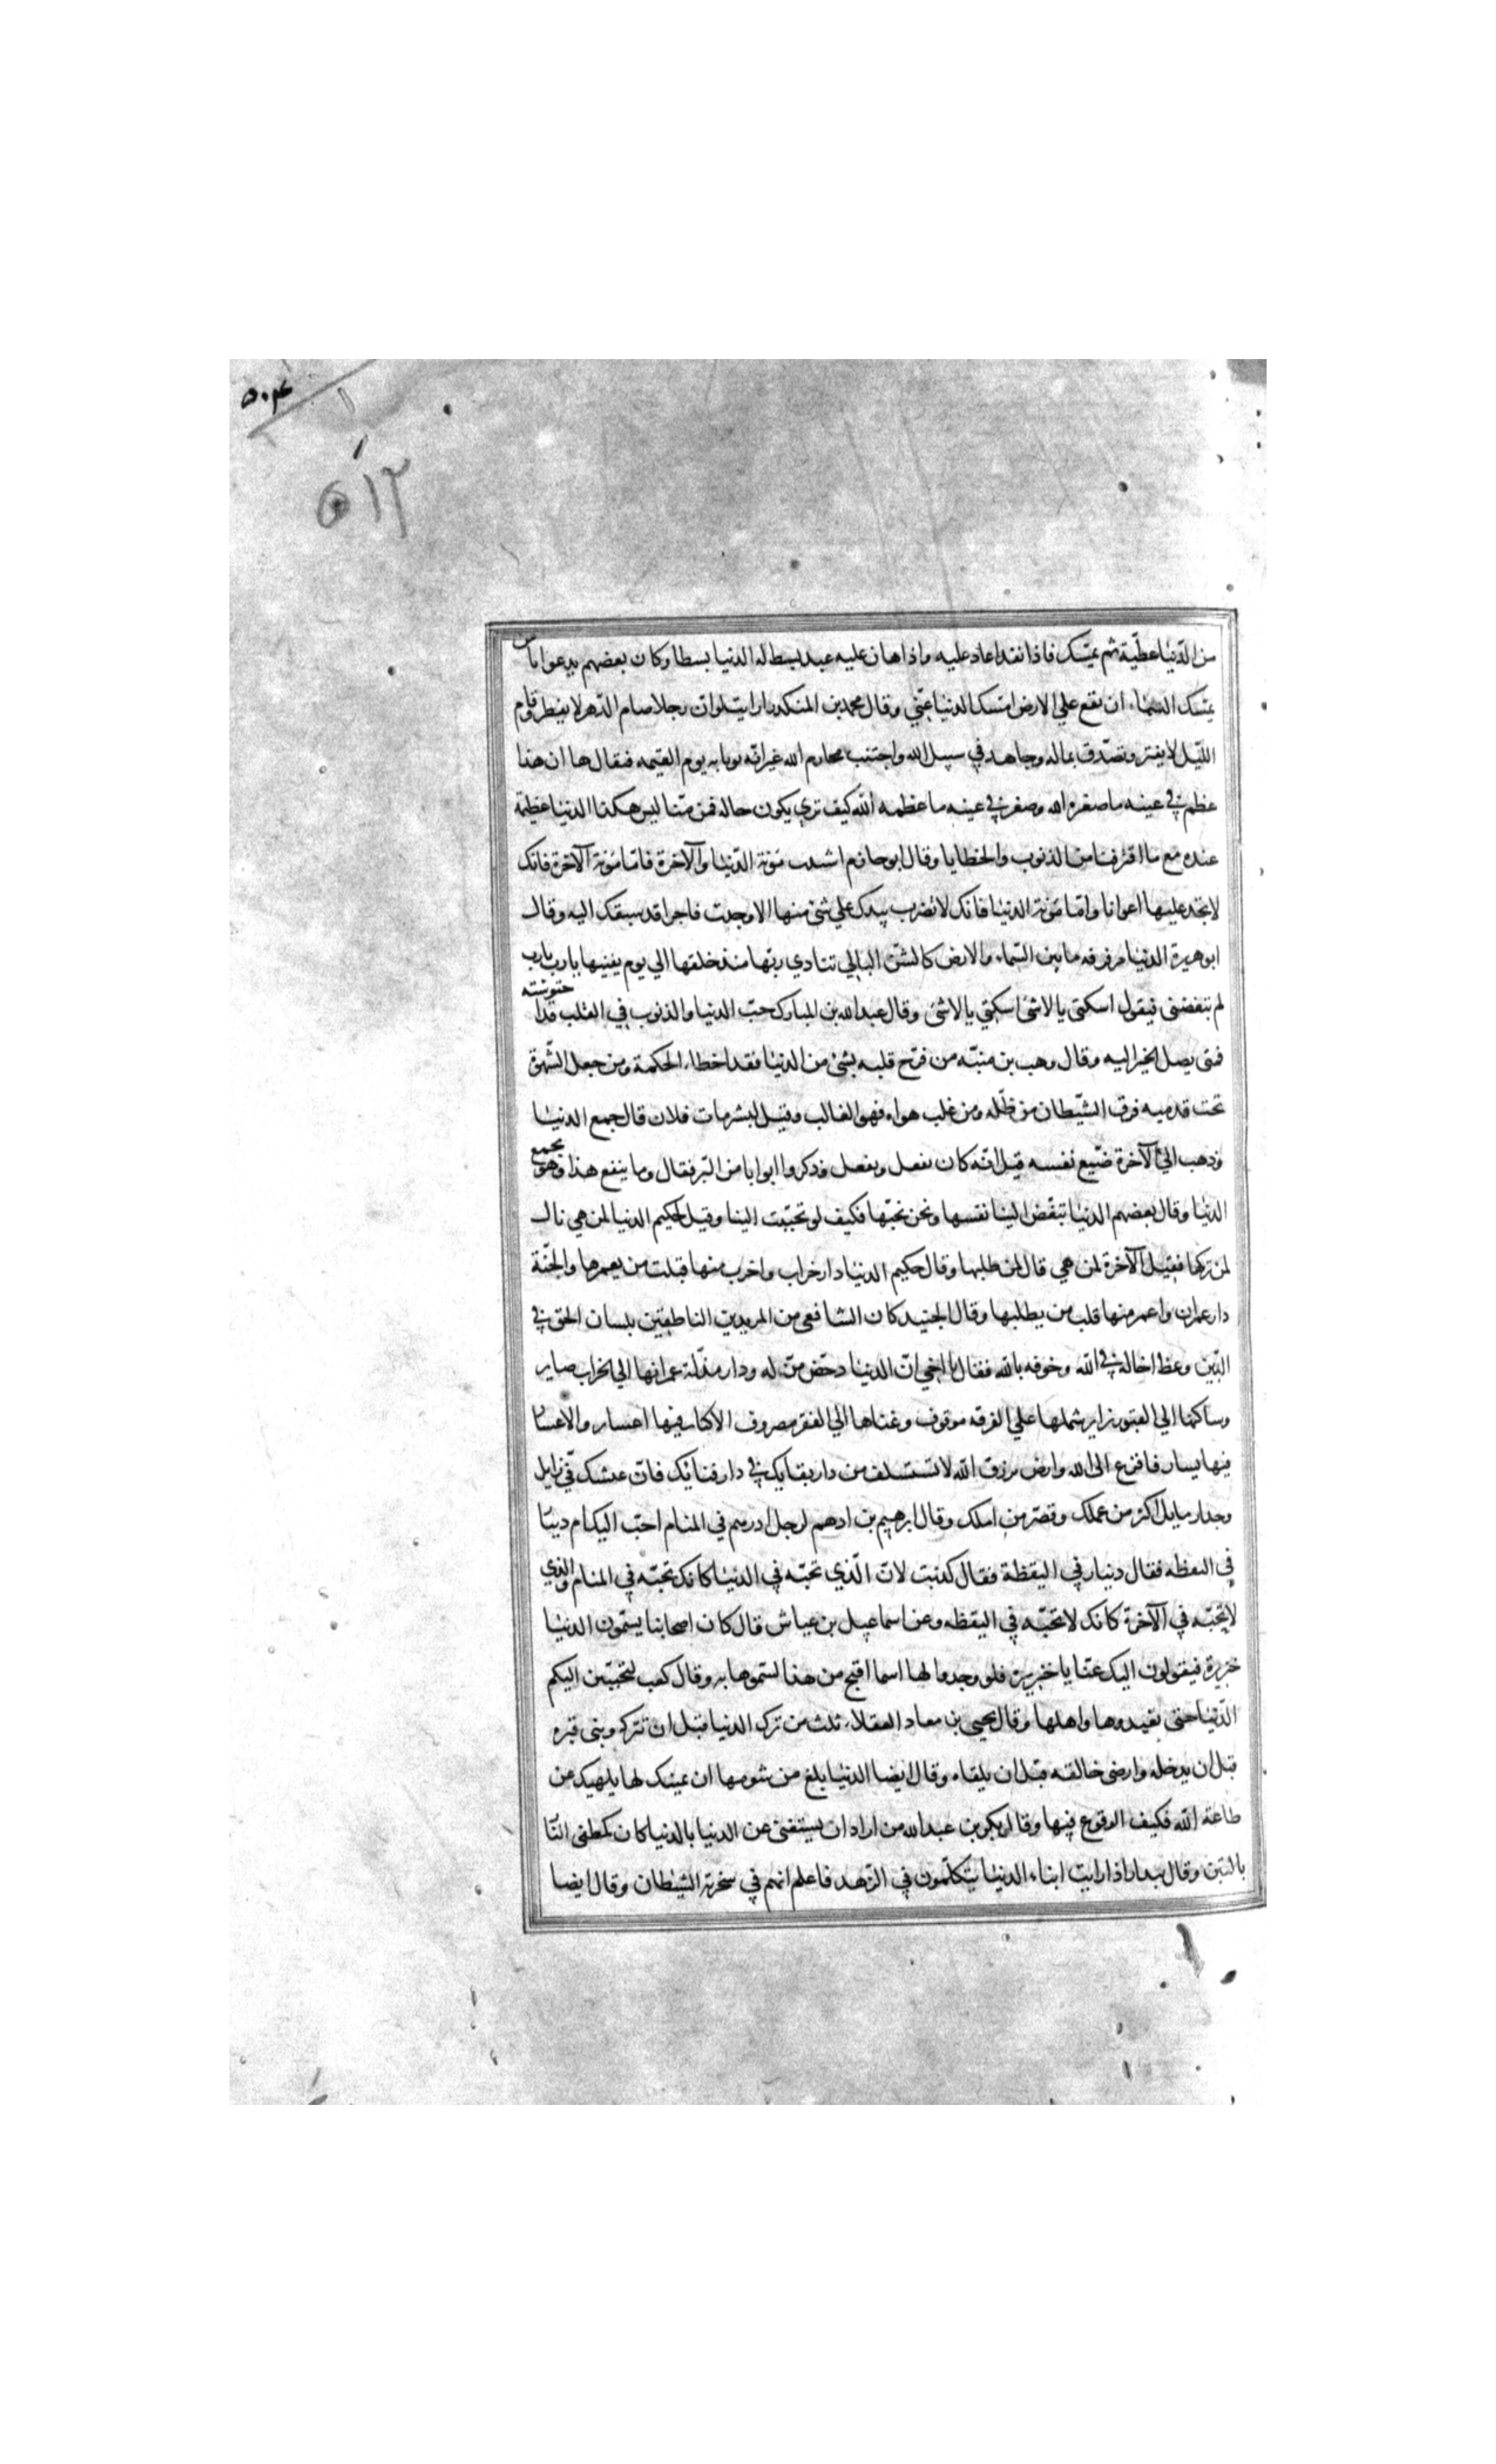 ۵۰۴
۵۱۳
من الدّنيا عطيّة ثم يمسّك فاذا نفد اعاد عليه واذا هان عليه عبد بسط له الدنيا بسطا وكان بعضهم يدعو يا من
يمسك السماء ان تقع علي الارض امسك الدنيا عنّي وقال محمد بن المنكدر ارايت لو ان رجلا صام الدّهر لا يفطر وقام
اللّيل لا يفتر وتصدّق بماله وجاهد في سبيل الله واجتنب محارم الله غير انّه يوتا به يوم القيمه فيقال ها ان هذا
عظم في عينه ما صغره الله وصغر في عينه ما عظمه الله كيف تري يكون حاله فمن منّا ليس هكذا الدنيا عظيمة
عنده مع ما اقترفنا من الذنوب والخطايا وقال ابو حازم اشتدت مؤنة الدّنيا والآخرة فامّا مؤنة الآخرة فانك
لا تجد عليها اعوانا وامّا مؤنة الدنيا فانك لا تضرب بيدك علي شئ منها الا وجدت فاجرا قد سبقك اليه وقال
ابو هريرة الدنيا موقوفه ما بين السّماء والارض كالشنّ البالي تنادي ربّها منذ خلقها الي يوم يفنيها يا رب يا رب
لم تبغضني فيقول اسكتي يا لا شئ اسكتي يا لا شئ وقال عبد الله بن المبارك حبّ الدنيا والذنوب في القلب قد احتوشته
فمتى يصل الخير اليه وقال وهب بن منبّه من فرّح قلبه بشئ من الدنيا فقد اخطاء الحكمة ومن جعل الشّهوة
تحت قدميه فرق الشّيطان من ظلّه ومن غلب هواه فهو الغالب وقيل لبشر مات فلان قال جمع الدنيا
وذهب الي الآخرة ضيّع نفسه قيل انّه كان يفعل ويفعل وذكروا ابوابا من البرّ فقال وما ينفع هذا وهو يجمع
الدنيا وقال بعضهم الدنيا تبغّض الينا نفسها ونحن نحبّها فكيف لو تحبّبت الينا وقيل لحكيم الدنيا لمن هي قال
لمن تركها فقيل الآخرة لمن هي قال لمن طلبها وقال حكيم الدنيا دار خراب واخرب منها قلب من يعمرها والجنّة
دار عمران واعمر منها قلب من يطلبها وقال الجنيد كان الشافعي من المريدين الناطقين بلسان الحق في
الدّين وعظ اخا له في الله وخوفه بالله فقال يا اخي انّ الدنيا دحض مزّله ودار مذلّة عمرانها الي الخراب صاير
وساكنها الي القبور زاير شملها علي الفرقه موقوف وغناها الي الفقر مصروف الاكثار فيها اعسار والاعسار
فيها يسار فافزع الى الله وارض برزق الله لا تتسلف من دار بقايك في دار فنائك فانّ عيشك فئ زايل
وجدار مايل اكثر من عملك وقصّر من املك وقال ابرهيم بن ادهم لرجل ادرهم في المنام احبّ اليك ام دينار
في اليقظه فقال دينار في اليقظة فقال كذبت لانّ الّذي تحبّه في الدنيا كانك تحبّه في المنام والذي
لا تحبّه في الآخرة كانك لا تحبّه في اليقظه وعن اسماعيل بن عياش قال كان اصحابنا يسمّون الدنيا
خنزيرة فيقولون اليك عنّا يا خنزيرة فلو وجدوا لها اسما اقبح من هذا لسموها به وقال كعب لتحببّن اليكم
الدّنيا حتى تعبدوها واهلها وقال يحيي بن معاذ العقلاء ثلث من ترك الدنيا قبل ان تتركه وبنى قبره
قبل ان يدخله وارضى خالقه قبل ان يلقاه وقال ايضا الدنيا بلغ من شومها ان تمنيك لها يلهيك عن
طاعة الله فكيف الوقوع فيها وقال بكر بن عبد الله من اراد ان يستغنى عن الدنيا بالدنيا كان كمطفى النّار
بالتبن وقال بندار اذا رايت ابناء الدنيا يتكلّمون في الزّهد فاعلم انهم في سخرة الشيطان وقال ايضا